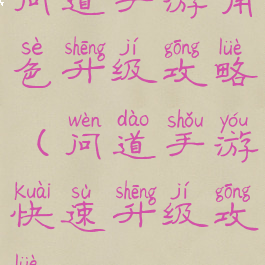 问道手游角
sè shēng jí gōng lüè
色升级攻略
wèn dào shǒu yóu
（问道手游
Kuài sù shēng jí gōng
快速升级攻
lüè